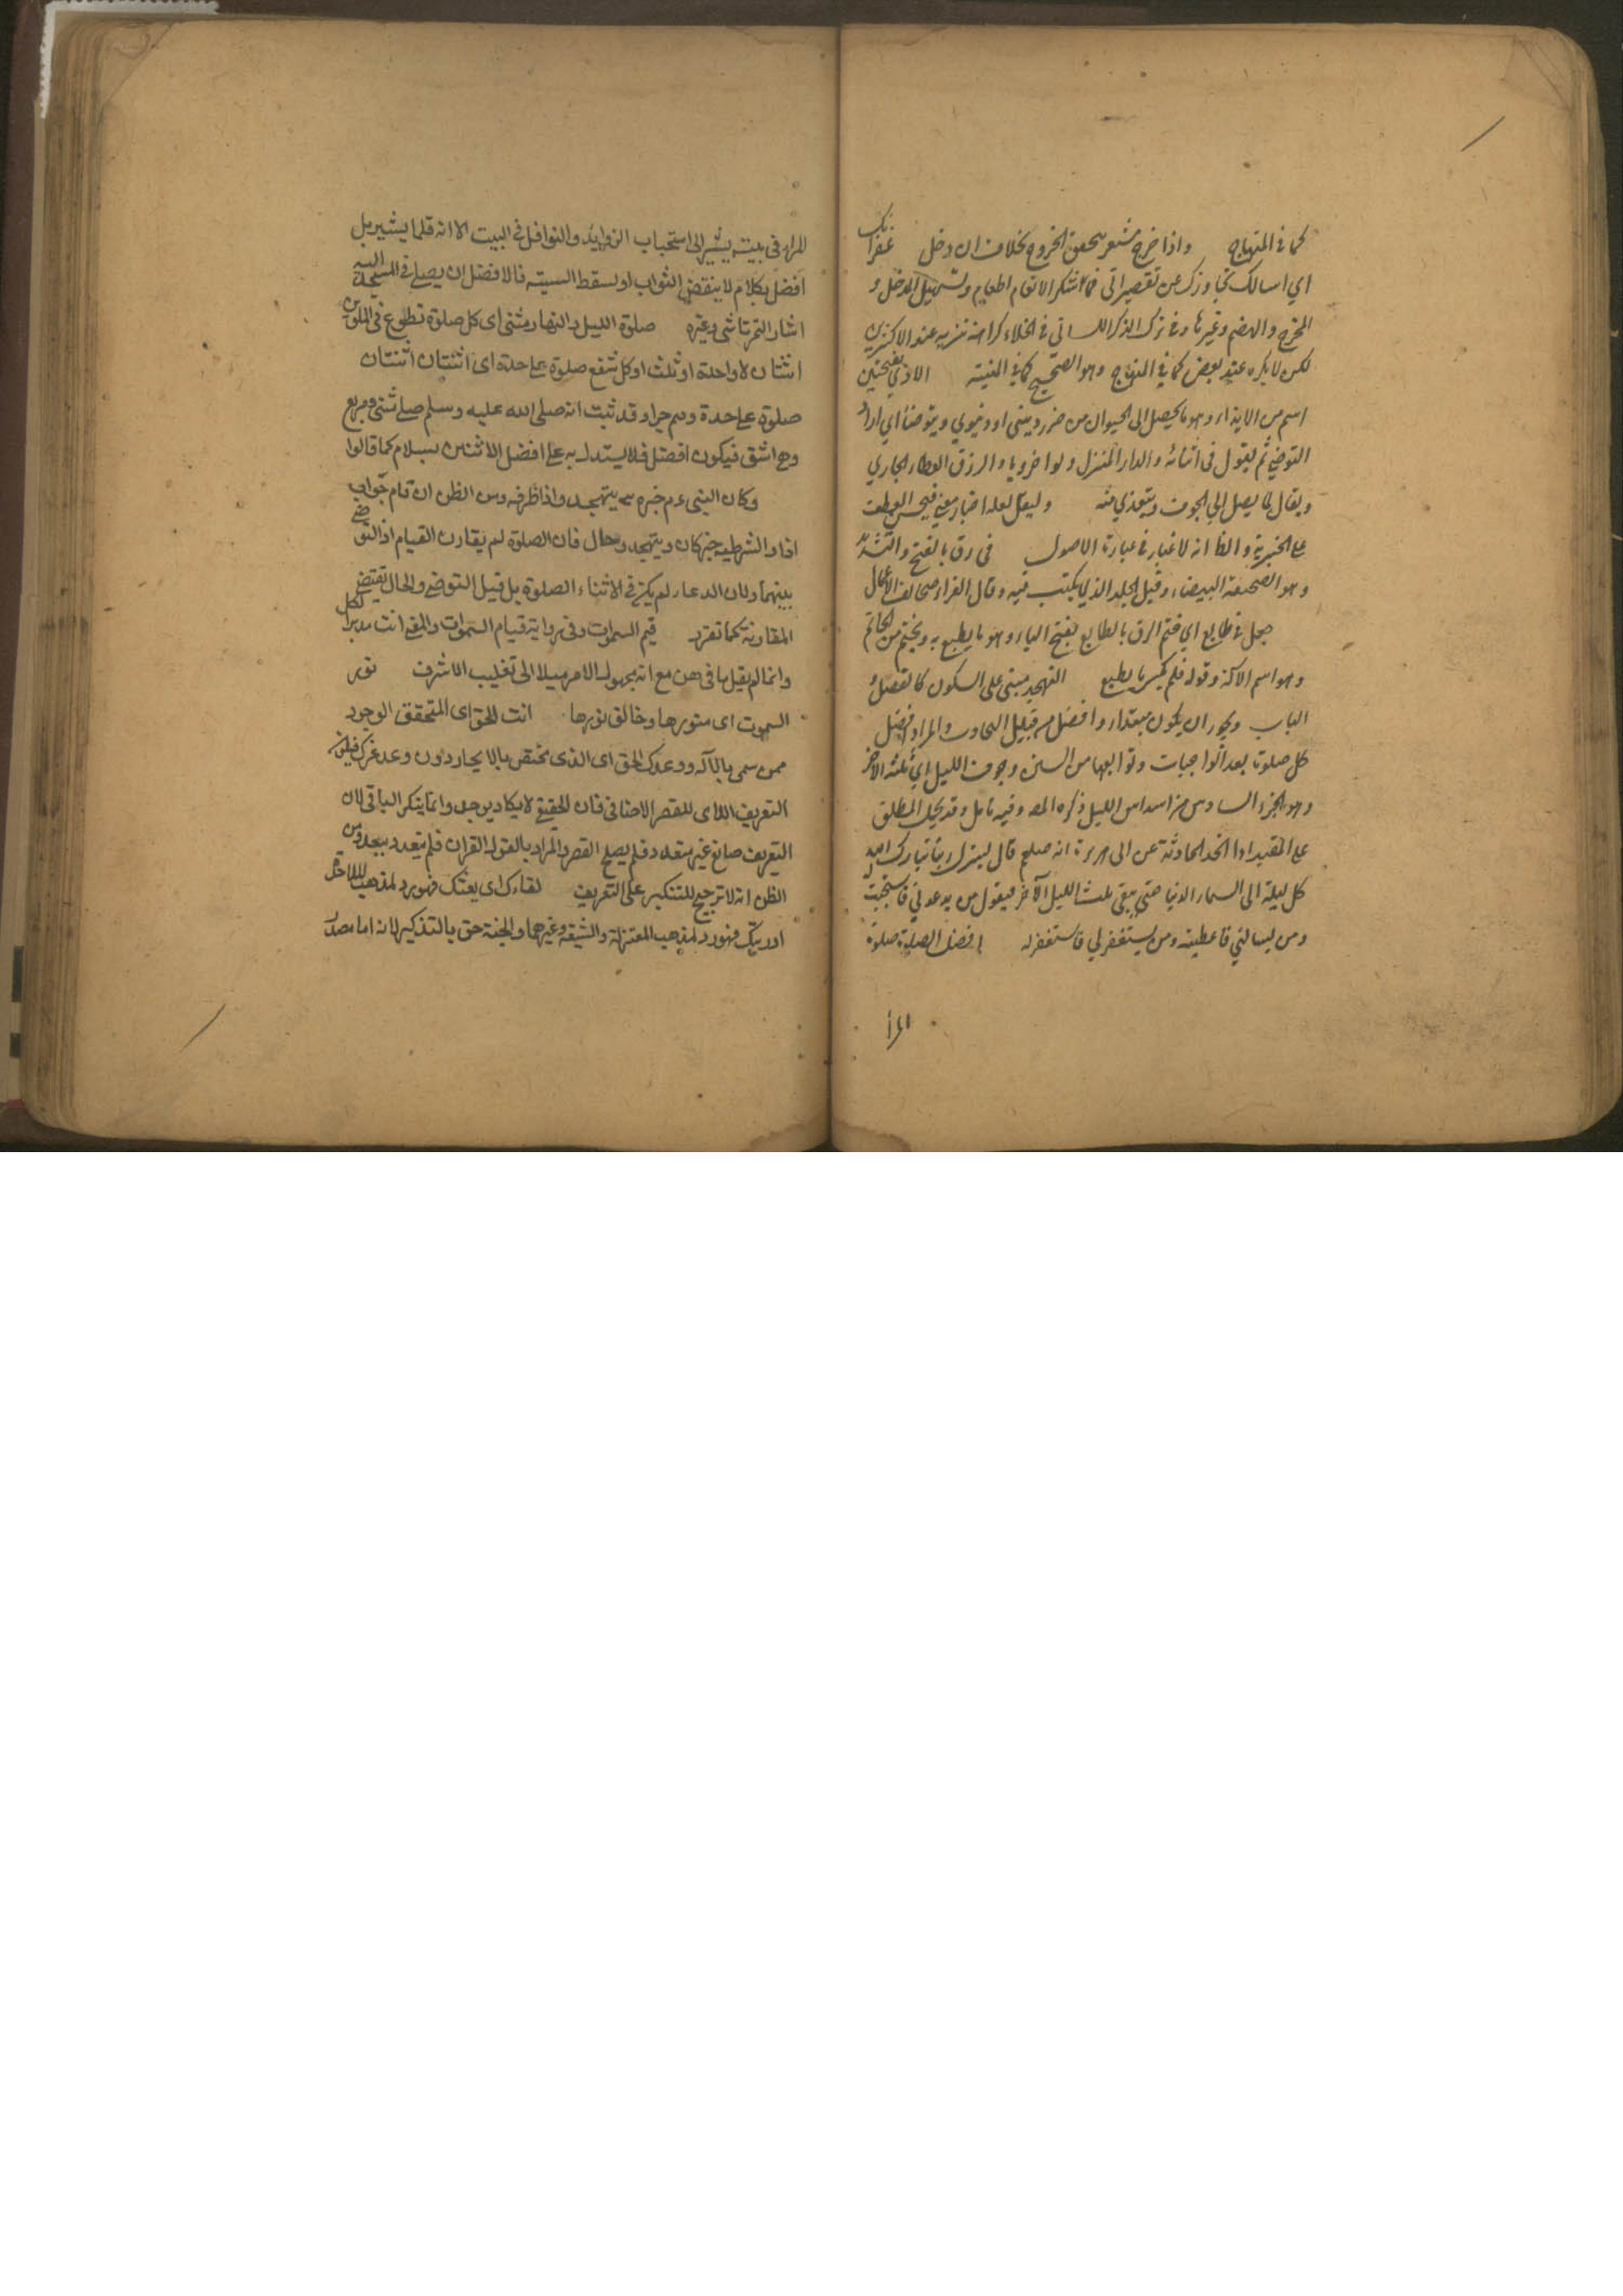 كما في المنهاج واذا خرج مشعر بتحقق الخروج بخلاف ان دخل غفرانك
اي اسالك تجاوزك عن تقصيراتي في شكر الانعام اطعام وتسهيل المدخل و
المخرج والهضم وغيرها وفي ترك الذكر اللساني في الخلاء كراهة تنزيه عند الاكثرين
لكن لا يكره عند بعض كما في المنهاج وهو الصحيح كما في المنية الاذي بفتحتين
اسم من الايذاء وهو ما يحصل الى الحيوان من ضرر ديني او دنيوي ويتوضأ اي اراد
التوضي ثم يقول في اثنائه والدار المنزل ولو اخرويا والرزق العطاء الجاري
ويقال لما يصل الي الجوف ويتغذي منه وليقل لعله اخبار معني فيحسن العطف
على الخبرية والظ انه لا غبار في عبارة الاصول في رق بالفتح والتشديد
وهو الصحيفة البيضاء وقيل الجلد الذي يكتب فيه وقال الفراء صحائف الاعمال
جعل في طابع اي ختم الرق بالطابع بفتح الباء وهو ما يطبع به ويختم من الخاتم
وهو اسم الآلة وقوله فلم يكسر ما يطبع التهجد مبني على السكون كالفصل و
الباب ويجوز ان يكون مبتداء وافضل من قبيل والمراد افضل
كل صلوة بعد الواجبات وتوابعها من السنن وجوف الليل اي ثلثه الاخر
وهو الجزء السادس من اسداس الليل ذكره المص وفيه تامل وقد يحمل المطلق
على المقيد اذا اتحد الحادثة عن ابي هريرة انه صلعم قال لينزل ربنا تبارك اسمه
كل ليلة الى السماء الدنيا حتي يبقي ثلث الليل الآخر فيقول من يدعوني فاستجبت له
ومن يسالني فاعطيته ومن يستغفر لي فاستغفر له افضل الصلوة صلوة
المرأ
المراء في بيته يشير الى استحباب الزوايد والنوافل في البيت الا انه قلما يشير بل
افضل بكلام لا ينقض الثواب او لسقط السنيته فالافضل ان يصلي في المسجد اليه
اشار التمرتاشي وغيره صلوة الليل والنهار مثنى اى كل صلوة تطوع في الملوين
اثنتان لا واحدة او ثلث او كل شفع صلوة علىحدة اى اثنتان اثنتان
صلوة علىحدة وقد ثبت انه صلى الله عليه وسلم صلى مثنى واربع
وهي اشق فيكون افضل فلا يستدل به على افضل الاثنتين بسلام كما قالوا
وكان النبي عم خبره يتهجد واذا ظرفه ومن الظن ان قام جواب
اذا والشرطية خبر كان ويتهجد وحال فان الصلوة لم يقارن القيام اذ التوضي
بينهما ولان الدعاء لم يكن في الاثناء الصلوة بل قبيل التوضي والحال تقتضي
المقارنة كما تقرر قيم السموات وفي رواية قيام السموات والمعنى انت مدبر لكل
وانما لم يقل ما فيهن مع انه مجهول الامر ميلا الى تغليب الاشرف نور
السموت اى منورها وخالق نورها انت الحق اى المتحقق الوجود
ممن سمى بالآله ووعدك الحق اى الذي تختص بالايجاد دون وعد غيرك
التعريف اللاى للقصر الاضافي فان الحقيقي لا يكاد يوجد وانما ينكر الباقي لان
التعريف صانع غير متعدد فلم يصلح القصر والمراد بالقول القرآن فلم يتعدد بعد ومن
الظن انه لا ترجيح للتنكير على التعريف لقاءك اى بعثك فهو رد لمذهب الملاحدة
او رؤيتك فهو رد لمذهب المعتزلة والشيعة وغيرهما والجنة حق بالتذكير لانه اما مصدر